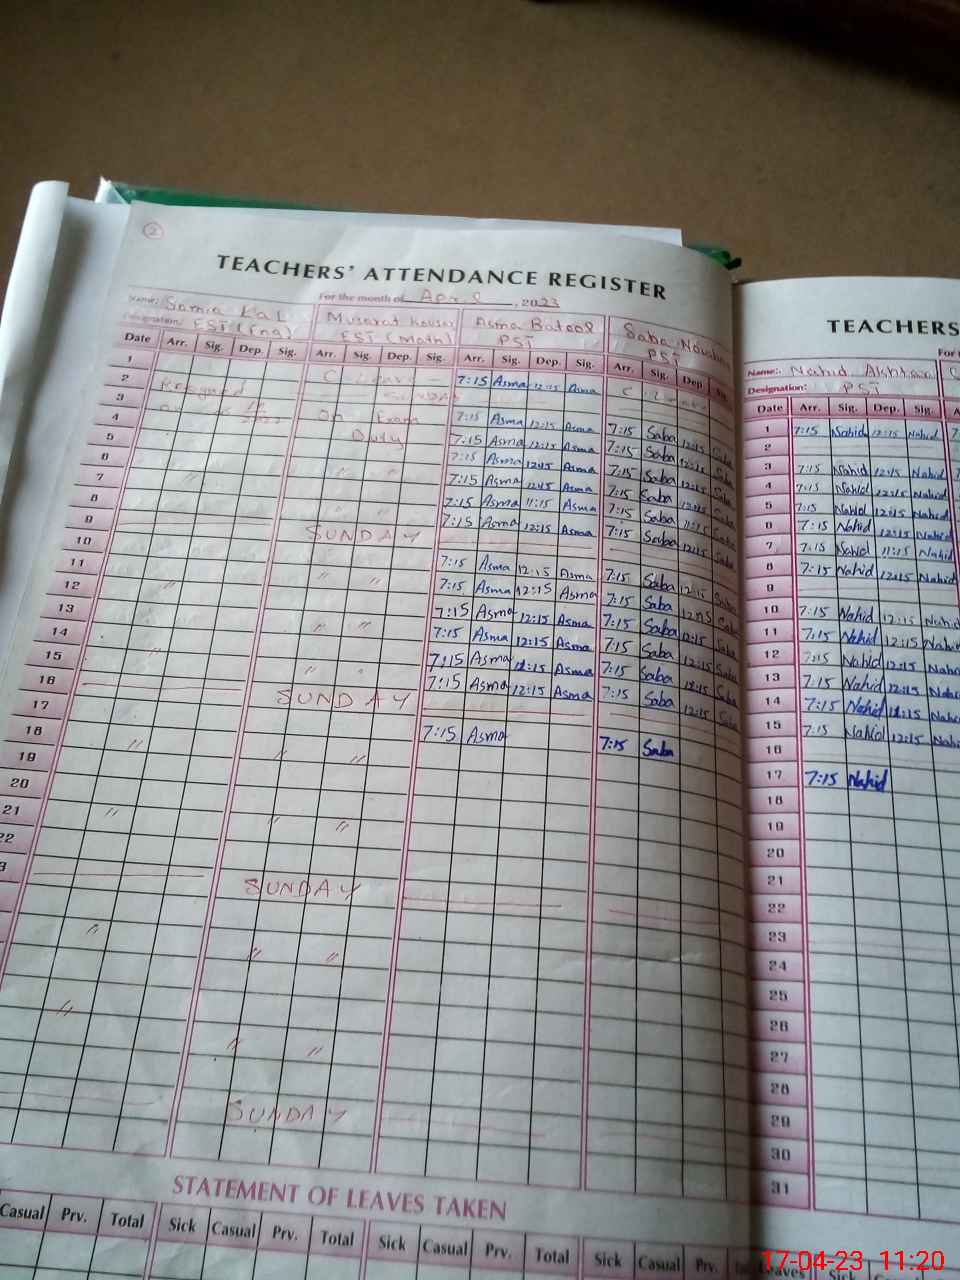 2
TEACHERS' ATTENDANCE REGISTER
For the month of April, 2023
Name: Samia Kal Musarat Kousar Asma Batool Saba Noushin
Designation: EST (Eng) EST (Math) PST PST
Date Arr. Sig. Dep. Sig. Arr. Sig. Dep. Sig. Arr. Sig. Dep. Sig. Arr. Sig. Dep Sig.
1 C Leave 7:15 Asma 12:15 Asma C Leave
2 Resigned SUNDAY
3 On Exam 7:15 Asma 12:15 Asma 7:15 Saba 12:15 Saba
4 Duty 7:15 Asma 12:15 Asma 7:15 Saba 12:15 Saba
5 7:15 Asma 12:15 Asma 7:15 Saba 12:15 Saba
6 " " 7:15 Asma 12:15 Asma 7:15 Saba 12:15 Saba
7 " 7:15 Asma 11:15 Asma 7:15 Saba 11:15 Saba
8 " " 7:15 Asma 12:15 Asma 7:15 Saba 12:15 Saba
9 SUNDAY
10 7:15 Asma 12:15 Asma 7:15 Saba 12:15 Saba
11 " " 7:15 Asma 12:15 Asma 7:15 Saba 12:15 Saba
12 " 7:15 Asma 12:15 Asma 7:15 Saba 12:15 Saba
13 " " 7:15 Asma 12:15 Asma 7:15 Saba 12:15 Saba
14 " 7:15 Asma 12:15 Asma 7:15 Saba 12:15 Saba
15 " " 7:15 Asma 12:15 Asma 7:15 Saba 12:15 Saba
16 SUNDAY
17 7:15 Asma 7:15 Saba
18 " " "
19
20
21 " " "
22
3 SUNDAY
" " "
" " "
SUNDAY
STATEMENT OF LEAVES TAKEN
Casual Prv. Total Sick Casual Prv. Total Sick Casual Prv. Total Sick Casual Prv.
TEACHERS
For
Name: Nahid Akhtar
Designation: PST
Date Arr. Sig. Dep. Sig. A
1 7:15 Nahid 12:15 Nahid 7
2
3 7:15 Nahid 12:15 Nahid
4 7:15 Nahid 12:15 Nahid
5 7:15 Nahid 12:15 Nahid
6 7:15 Nahid 12:15 Nahid
7 7:15 Nahid 11:15 Nahid
8 7:15 Nahid 12:15 Nahid
9
10 7:15 Nahid 12:15 Nahid
11 7:15 Nahid 12:15 Nahid
12 7:15 Nahid 12:15 Nahid
13 7:15 Nahid 12:15 Nahid
14 7:15 Nahid 12:15 Nahid
15 7:15 Nahid 12:15 Nahid
16
17 7:15 Nahid
18
19
20
21
22
23
24
25
26
27
28
29
30
31
Leaves Sick
17-04-23 11:20